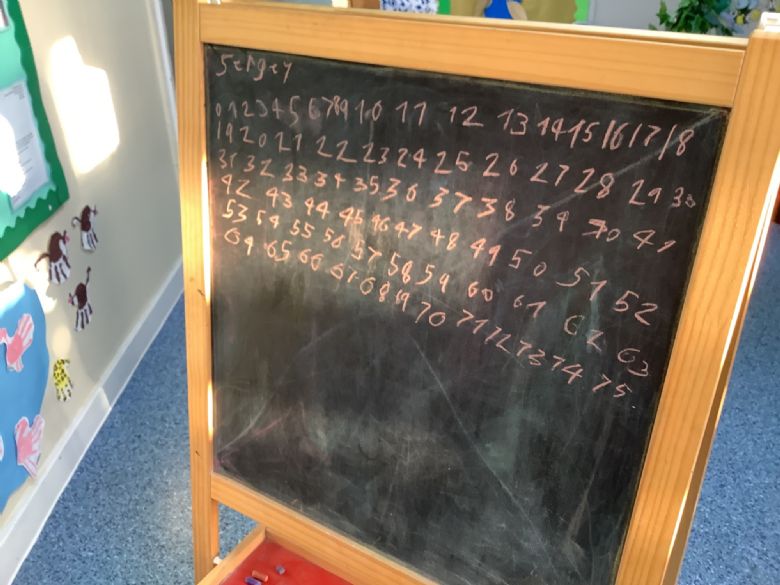 Sergey
0 1 2 3 4 5 6 7 8 9 10 11 12 13 14 15 16 17 18
19 20 21 22 23 24 25 26 27 28 29 30
31 32 33 34 35 36 37 38 39 40 41
42 43 44 45 46 47 48 49 50 51 52
53 54 55 56 57 58 59 60 61 62 63
64 65 66 67 68 69 70 71 72 73 74 75